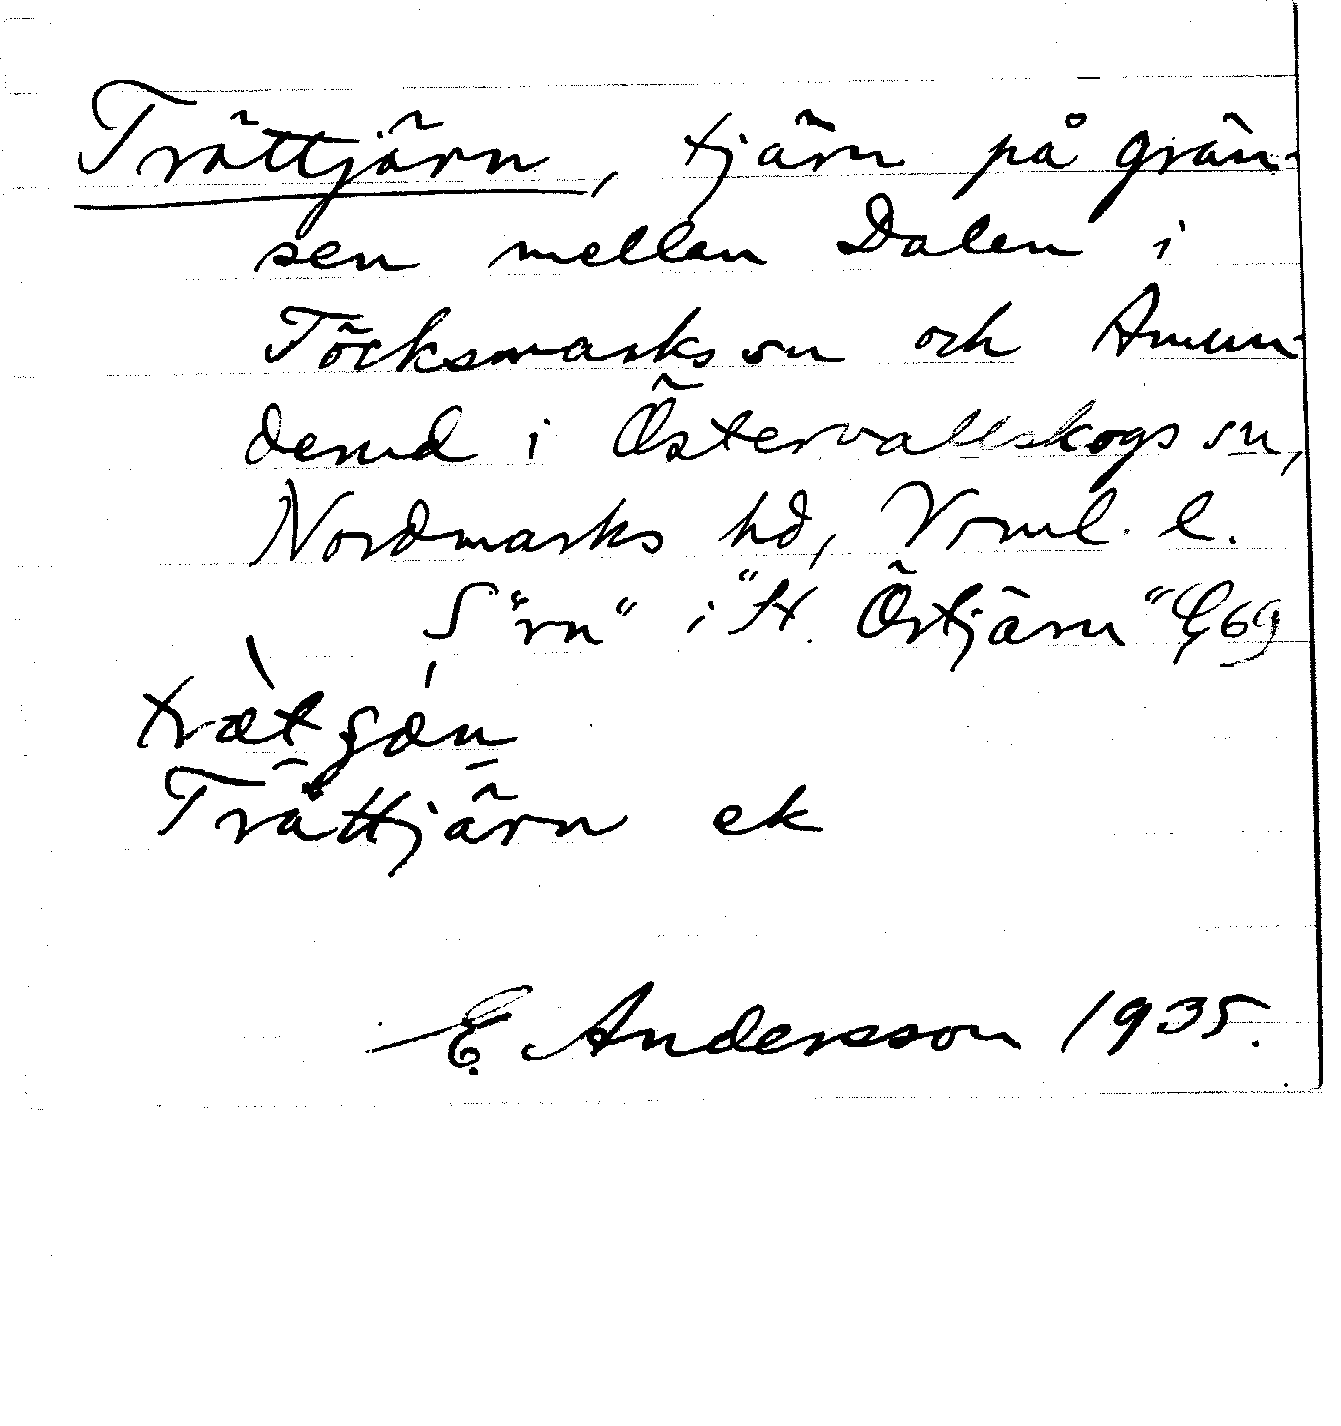 Trättjärn, tjärn på grän-
sen mellan Dalen i
Töcksmarks sn och Amun-
derud i Östervallskogs sn,
Nordmarks hd, Vrml. l.
S "rn" i "St. Örtjärn" G69
trætʃæn
Trättjärn ek
E. Andersson 1935.